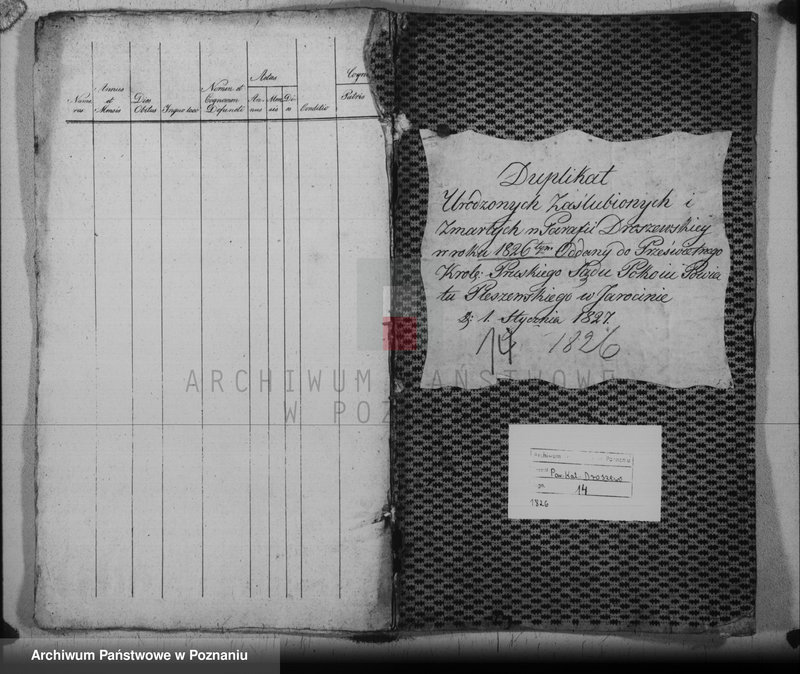 Nume
rus
Annus
et
Mensis
Dies
Obitus
In quo loco
Nomen et
Cognomen
Defuncti
Aetas
An-
nus
Men
sis
Di-
es
Conditio
Cognom
Patris
Duplikat
Urodzonych Zaślubionych i
Zmarłych w Parafii Droszewskiey
w roku 1826tym Oddany do Prześwietnego
Królę: Pruskiego Sądu Pokoiu Powia
tu Pleszewskiego w Jarocinie
1. Stycznia 1827.
14 1826
ARCHIWUM PAŃSTWOWE
W POZ
Archiwum Poznaniu
Par. Kat. Droszewo
14
1826
Archiwum Państwowe w Poznaniu